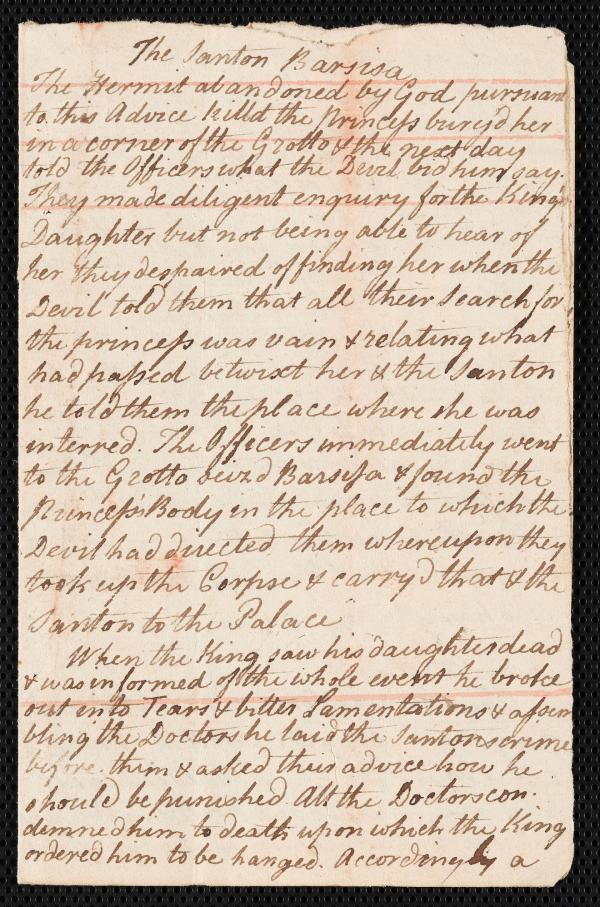 The Santon Barsisa
The Hermit abandoned by God pursuant
to this Advice killd the Princess burey'd her
in a corner of the Grotto & the next day
told the Officers what the Devil bid him say.
They made diligent enquiry for the King's
Daughter but not being able to hear of
her they despaired of finding her when the
Devil told them that all their Search for
the princess was vain & relating what
had passed betwixt her & the Santon
he told them the place where she was
interred. The Officers immediately went
to the Grotto seiz'd Barsisa & found the
Princess's Body in the place to which the
Devil had directed them whereupon they
took up the Corpse & carry'd that & the
Santon to the Palace
When the King saw his daughter dead
& was informed of the whole event he broke
out into Tears & bitter Lamentations & assem
bling the Doctors he laid the Santons crime
before them & asked their advice how he
should be punished. All the Doctors con-
demned him to death upon which the King
ordered him to be hanged. Accordingly a